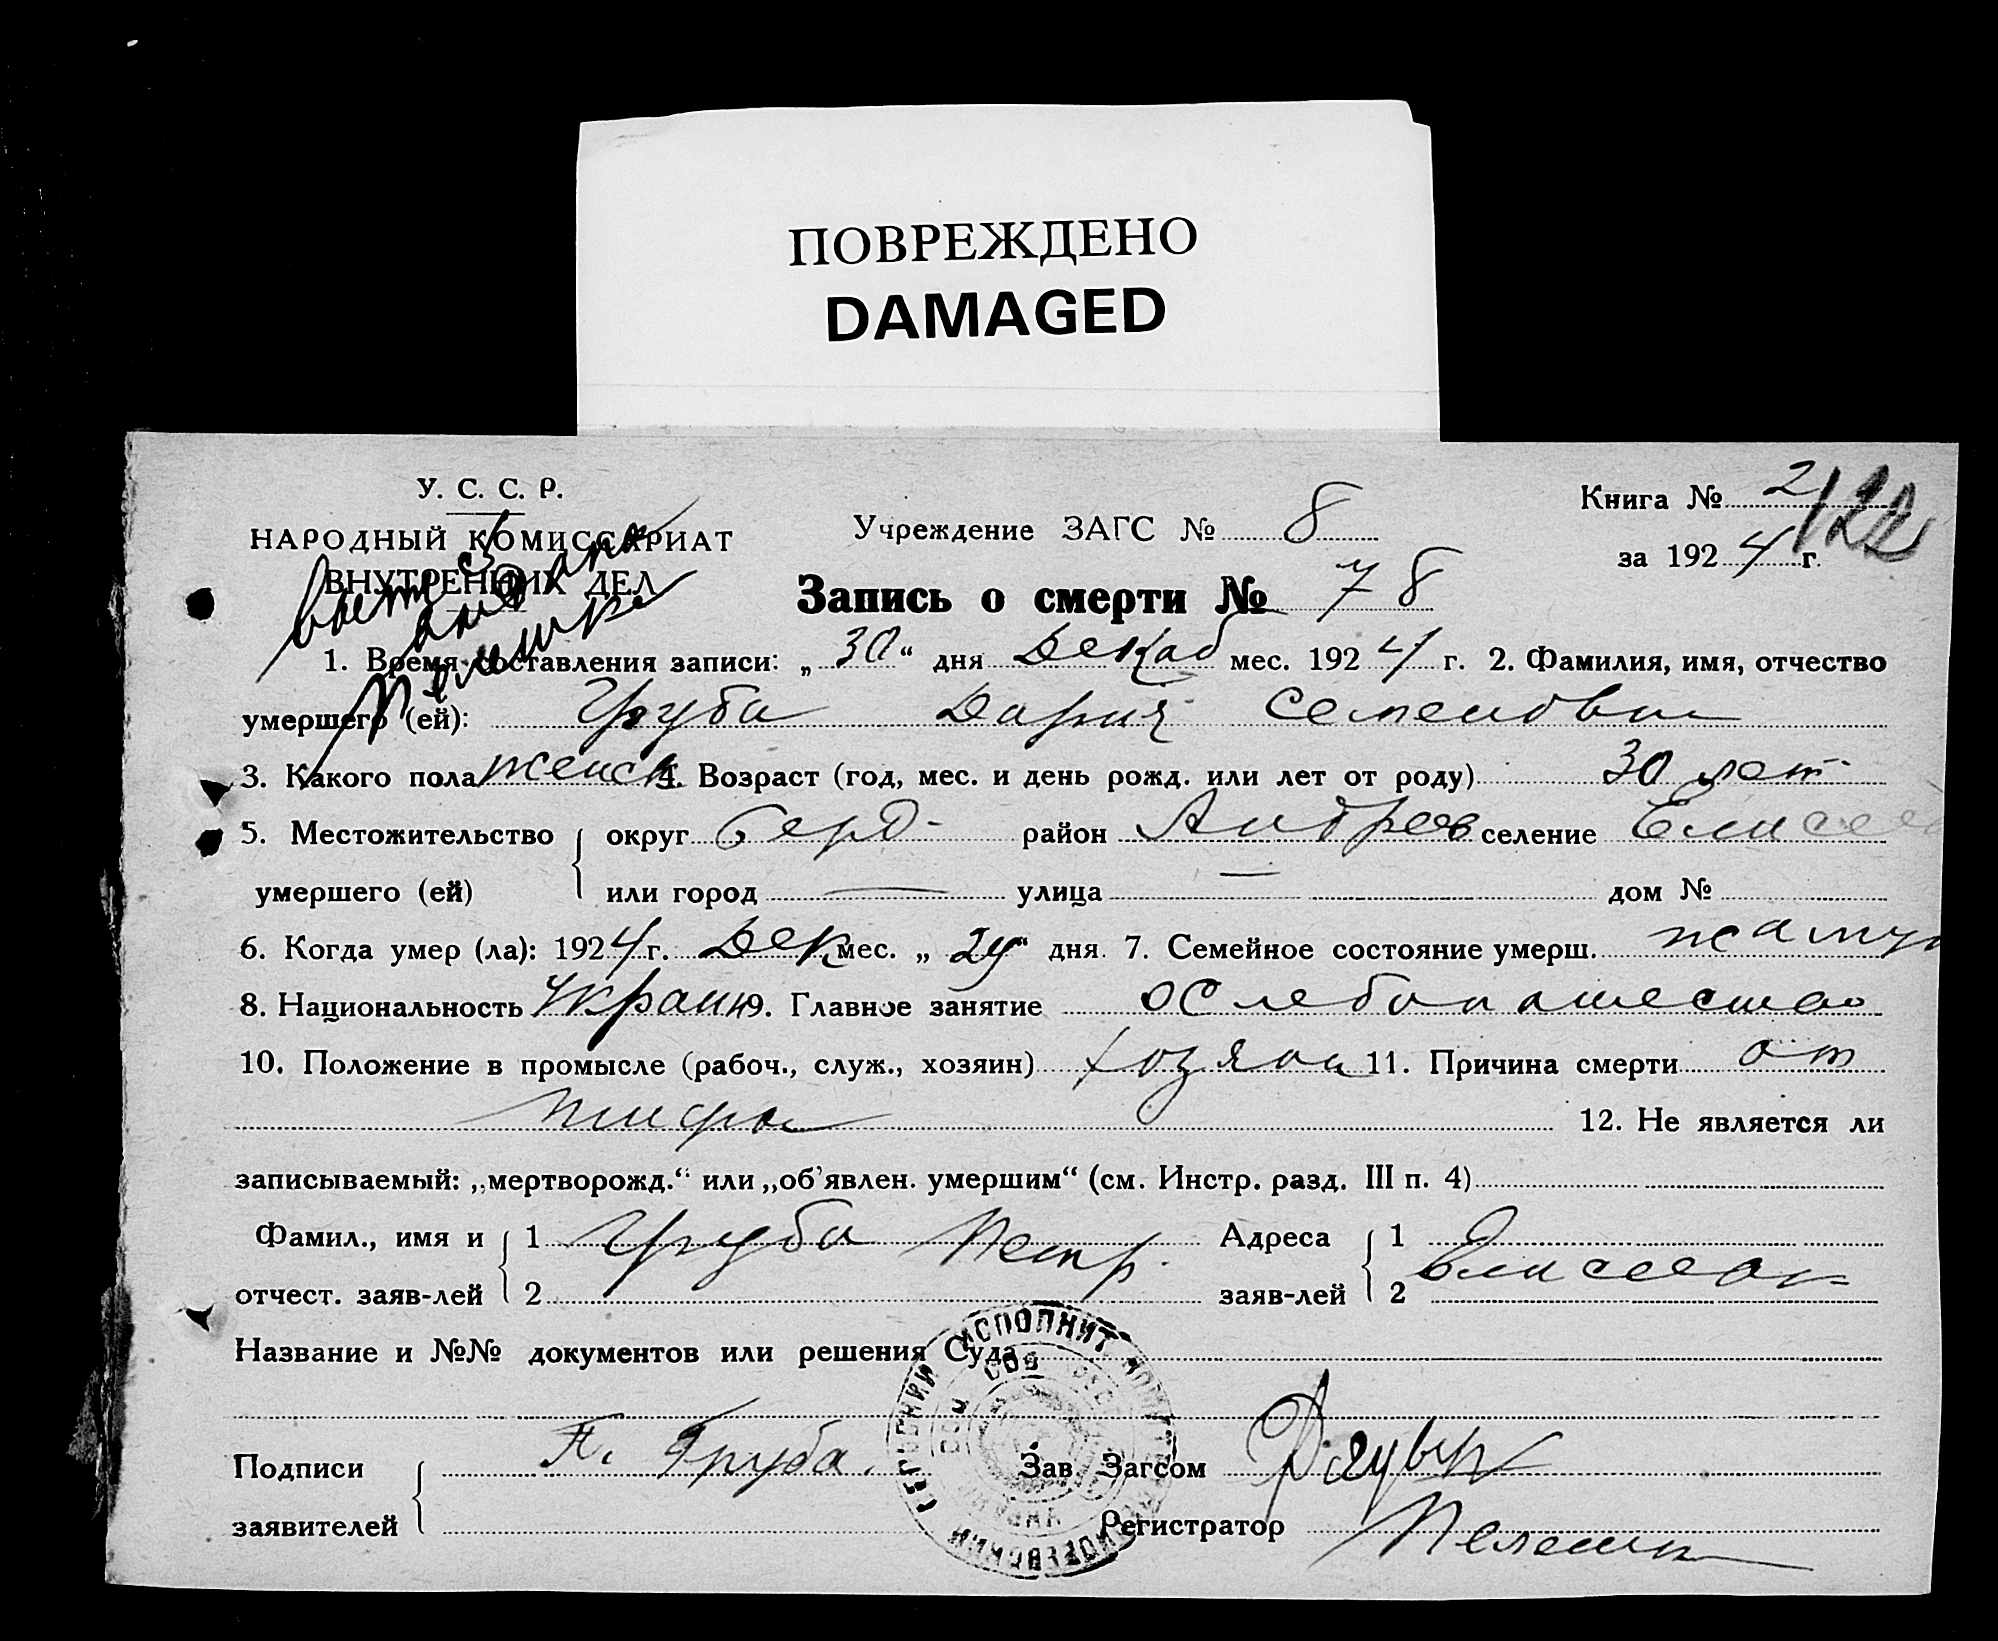 ПОВРЕЖДЕНО
DAMAGED
У. С. С. Р.
НАРОДНЫЙ КОМИССАРИАТ
ВНУТРЕННИХ ДЕЛ
Учреждение ЗАГС № 8
Книга № 2
122
за 1924 г.
Запись о смерти № 78
1. Время составления записи: „30“ дня Декаб мес. 1924 г. 2. Фамилия, имя, отчество
умершего (ей): Груба Дария Семеновна
3. Какого пола женск 4. Возраст (год, мес. и день рожд. или лет от роду) 30 лет
5. Местожительство округ Берд- район Андреев селение Елисеев
умершего (ей) или город — улица — дом №
6. Когда умер (ла): 1924 г. Дек мес. „29“ дня. 7. Семейное состояние умерш. замуж
8. Национальность Украин 9. Главное занятие
10. Положение в промысле (рабоч., служ., хозяин) хозяин 11. Причина смерти от
тифа 12. Не является ли
записываемый: „мертворожд.“ или „об’явлен. умершим“ (см. Инстр. разд. III п. 4)
Фамил., имя и 1 Груба Петр. Адреса 1
отчест. заяв-лей 2 заяв-лей 2 Елисеевка
Название и №№ документов или решения Суда
Подписи П. Груба. Зав. Загсом
заявителей Регистратор